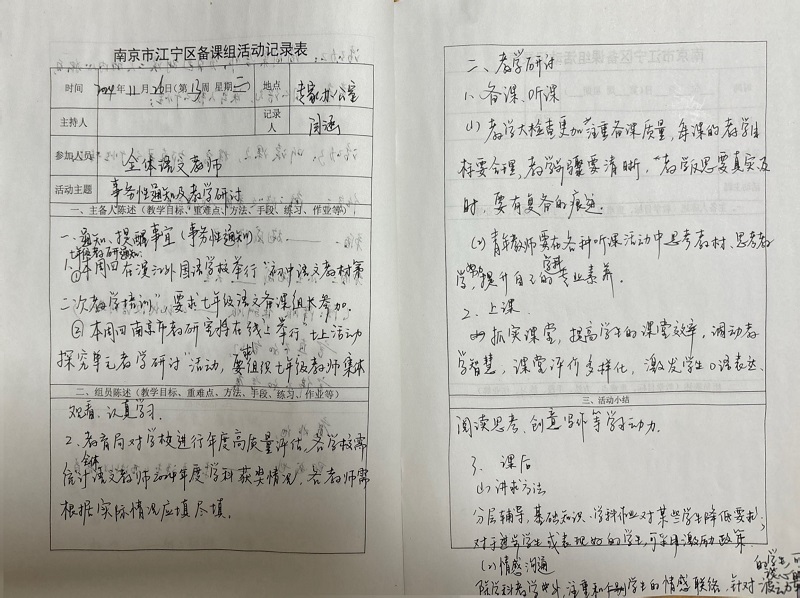 南京市江宁区备课组活动记录表
时间
2024年11月26日(第13周 星期二)
地点
专家办公室
主持人
记录人
闵涵
参加人员
全体语文教师
活动主题
事务性通知及教学研讨
一、主备人陈述（教学目标、重难点、方法、手段、练习、作业等）
一、通知、提醒事宜（事务性通知）
1、七年级教研通知:
①本周四在汉江外国语学校举行“初中语文教材第
二次教学培训”，要求七年级语文备课组长参加。
②本周四南京市教研室将在线上举行“七上活动
探究单元教学研讨”活动，要组织七年级教师集体
二、组员陈述（教学目标、重难点、方法、手段、练习、作业等）
观看，认真学习。
2、教育局对学校进行年度高质量评估，各学校需
统计全体语文教师2024年度学科获奖情况，各教师需
根据实际情况应填尽填。
二、教学研讨
1、备课、听课
(1)教学大检查更加注重备课质量，每课的教学目
标要合理，教学步骤要清晰，教学反思要真实及
时，要有复备的痕迹。
(2)青年教师要在各种听课活动中思考教材、思考教
学，提升自己的学科专业素养。
2、上课
(1)抓实课堂，提高学生的课堂效率，调动教
学智慧，课堂评价多样化，激发学生口语表达、
三、活动小结
阅读思考、创意写作等学习动力。
3、课后
(1)讲求方法
分层辅导，基础知识、学科作业对某些学生降低要求；
对于进步学生或表现好的学生，可采用激励政策。
(2)情感沟通
除学科教学之外，注重和个别学生的情感联络，针对
的学生，可